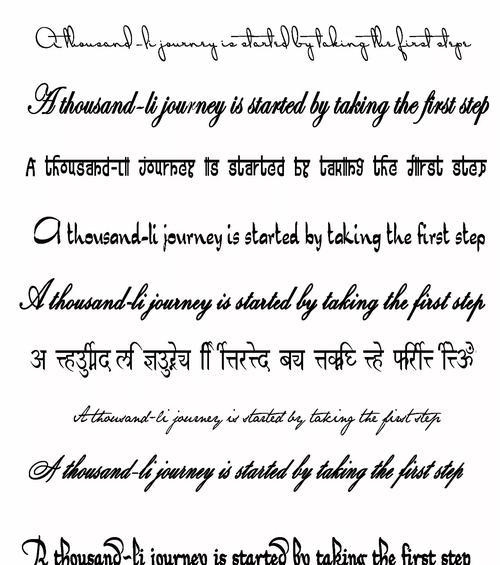 A thousand-li journey is started by taking the first step
A thousand-li journey is started by taking the first step
A thousand-li journey is started by taking the first step
A thousand-li journey is started by taking the first step
A thousand-li journey is started by taking the first step
अ
A thousand-li journey is started by taking the first step
A thousand-li journey is started by taking the first step
A thousand-li journey is started by taking the first step